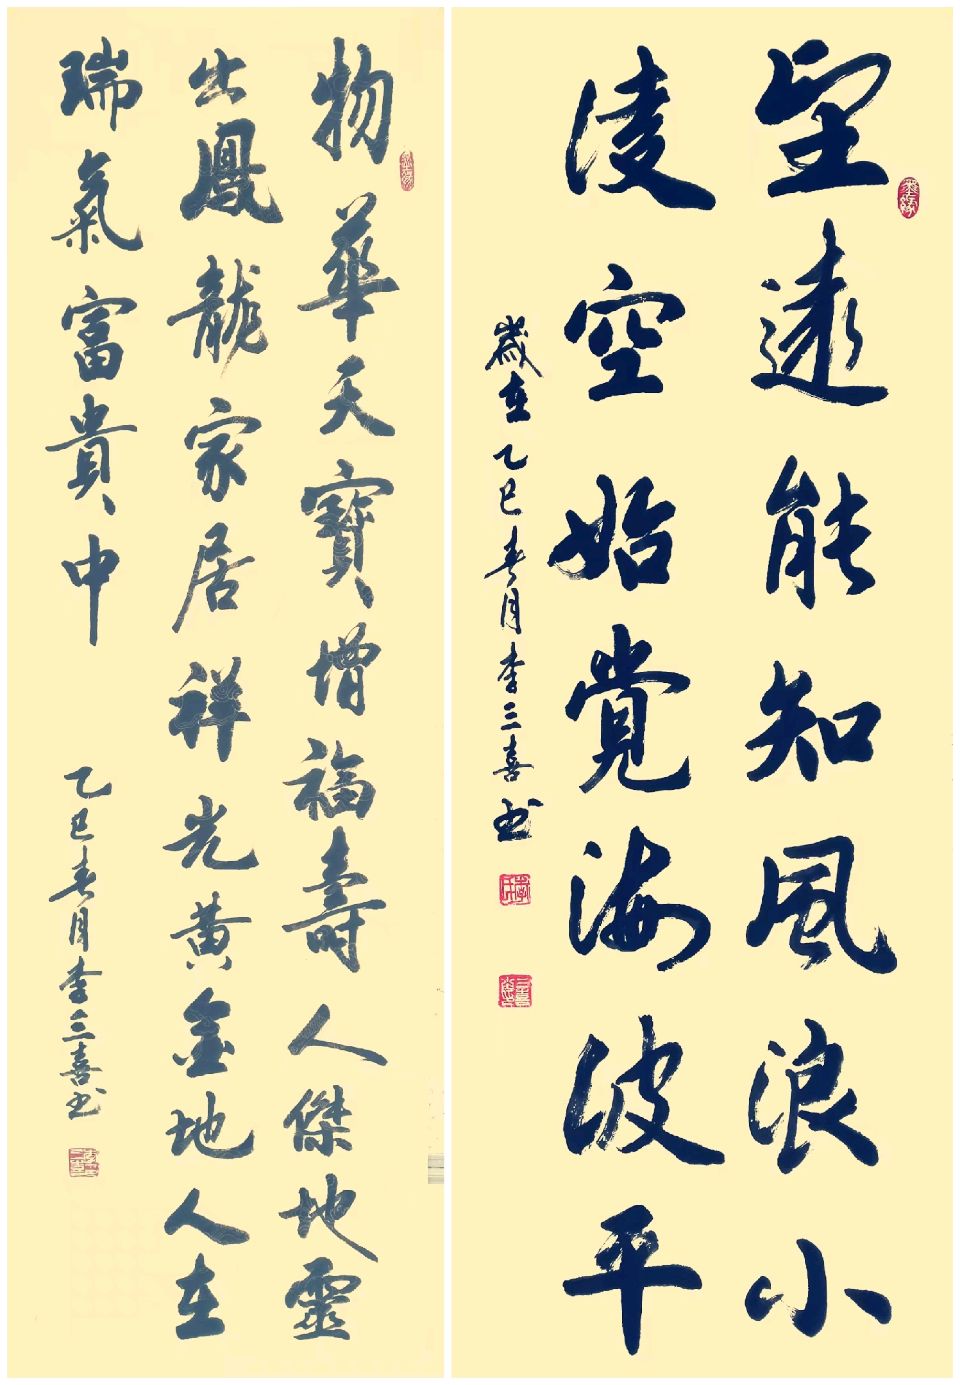 望遠能知風浪小
凌空始覺海波平
歲在乙巳春月李三喜书
物華天寶增福壽人傑地靈
出鳳龍家居祥光黄金地人在
瑞氣富貴中
乙巳春月李三喜书